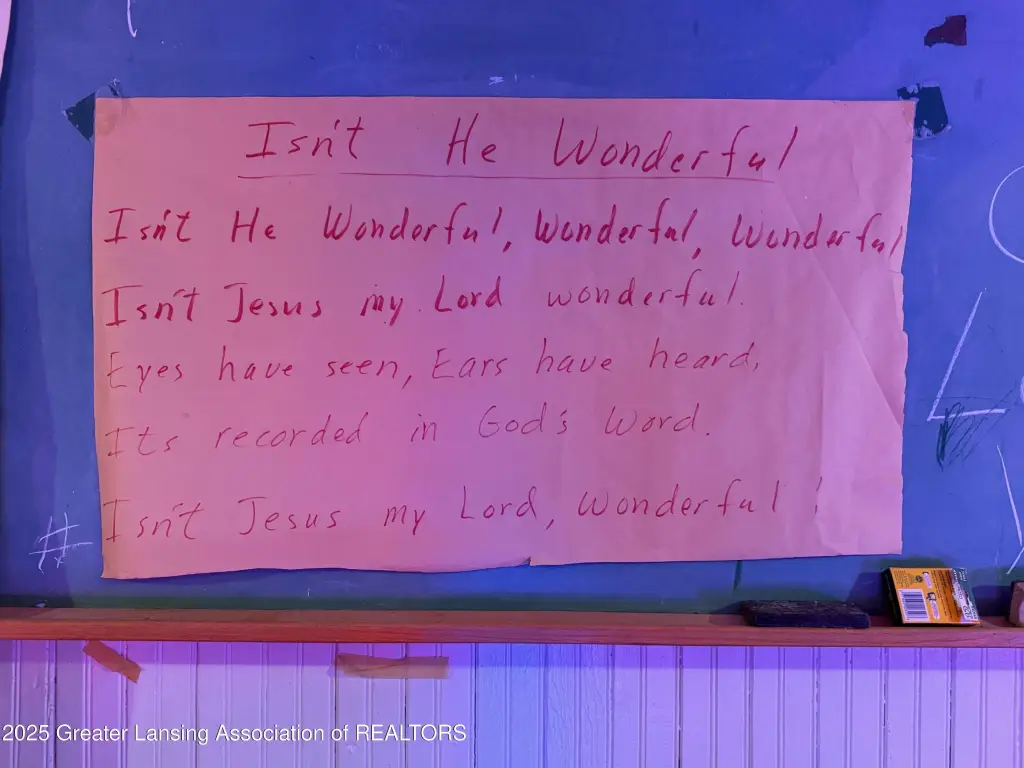 Isn't He Wonderful
Isn't He Wonderful, Wonderful, Wonderful
Isn't Jesus my Lord wonderful.
Eyes have seen, Ears have heard,
Its recorded in God's Word.
Isn't Jesus my Lord, Wonderful !
#
2025 Greater Lansing Association of REALTORS